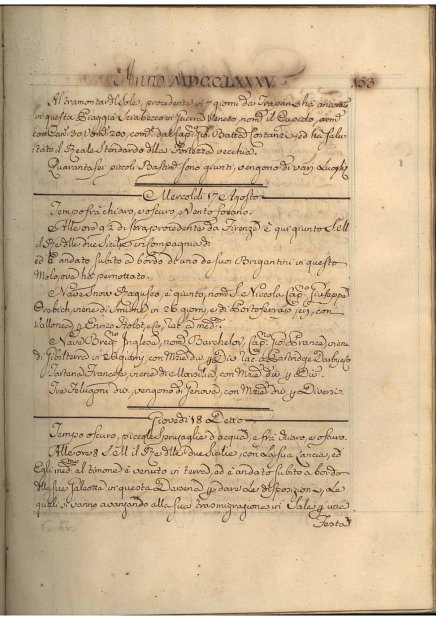 Anno MDCCLXXXV. 153
Al tramontar del Sole, procedente in 7 giorni da Trapani hà ancorato
in questa Piaggia Sciabecco in Guerra Veneto, nom.º il Cupido, arm.
con Can. 30, Uom. 200, com.º dal Cap. Gio. Batta Costanzi, ed hà salu
tato il Reale Stendardo della Fortezza vecchia.
Quarantasei piccoli Bastim.ti sono giunti, e vengono di vari Luoghi.
Mercoledi 17 Agosto
Tempo frà chiaro, e oscuro, Vento forano.
Alle ore 2 di sera procedente da Firenze è qui giunto S. M.
il Re delle due Sicilie in compagnia di
ed è andato subito a bordo di uno de suoi Brigantini in questo
Molo, ova hà pernottato.
Nave Snow Raguseo, è giunto, nom. S. Niccola, Cap. Giuseppe
viene di Smirne in 26 giorni, e di Portoferraio in, con
Vallonea, e
Nave Brig. Inglese, nom. Barchelor, Cap. Gio. France, viene
di Gibilterra in 26 giorni, con Merc. div. p. Div. rac. a Partridge
Tartana Francese, viene di Marsilia, con Merc. div. p. Div.
Tre Feluconi div. vengono di Genova, con Merc. div. p. Diversi.
Giovedi 18 Detto
Tempo oscuro, piccole spruzaglie d'acqua, e frà chiaro, e oscuro.
Alle ore 8 S. M. il Re delle due Sicilie, con la sua Lancia, ed
Egli med.º al timone è venuto in terra, ed è andato subito a bordo
delle sue Galeotte in questa Darsena p. dare le disposizioni, le
quali si vanno avanzando alla sua trasmigrazione in Sale p. una
Festa